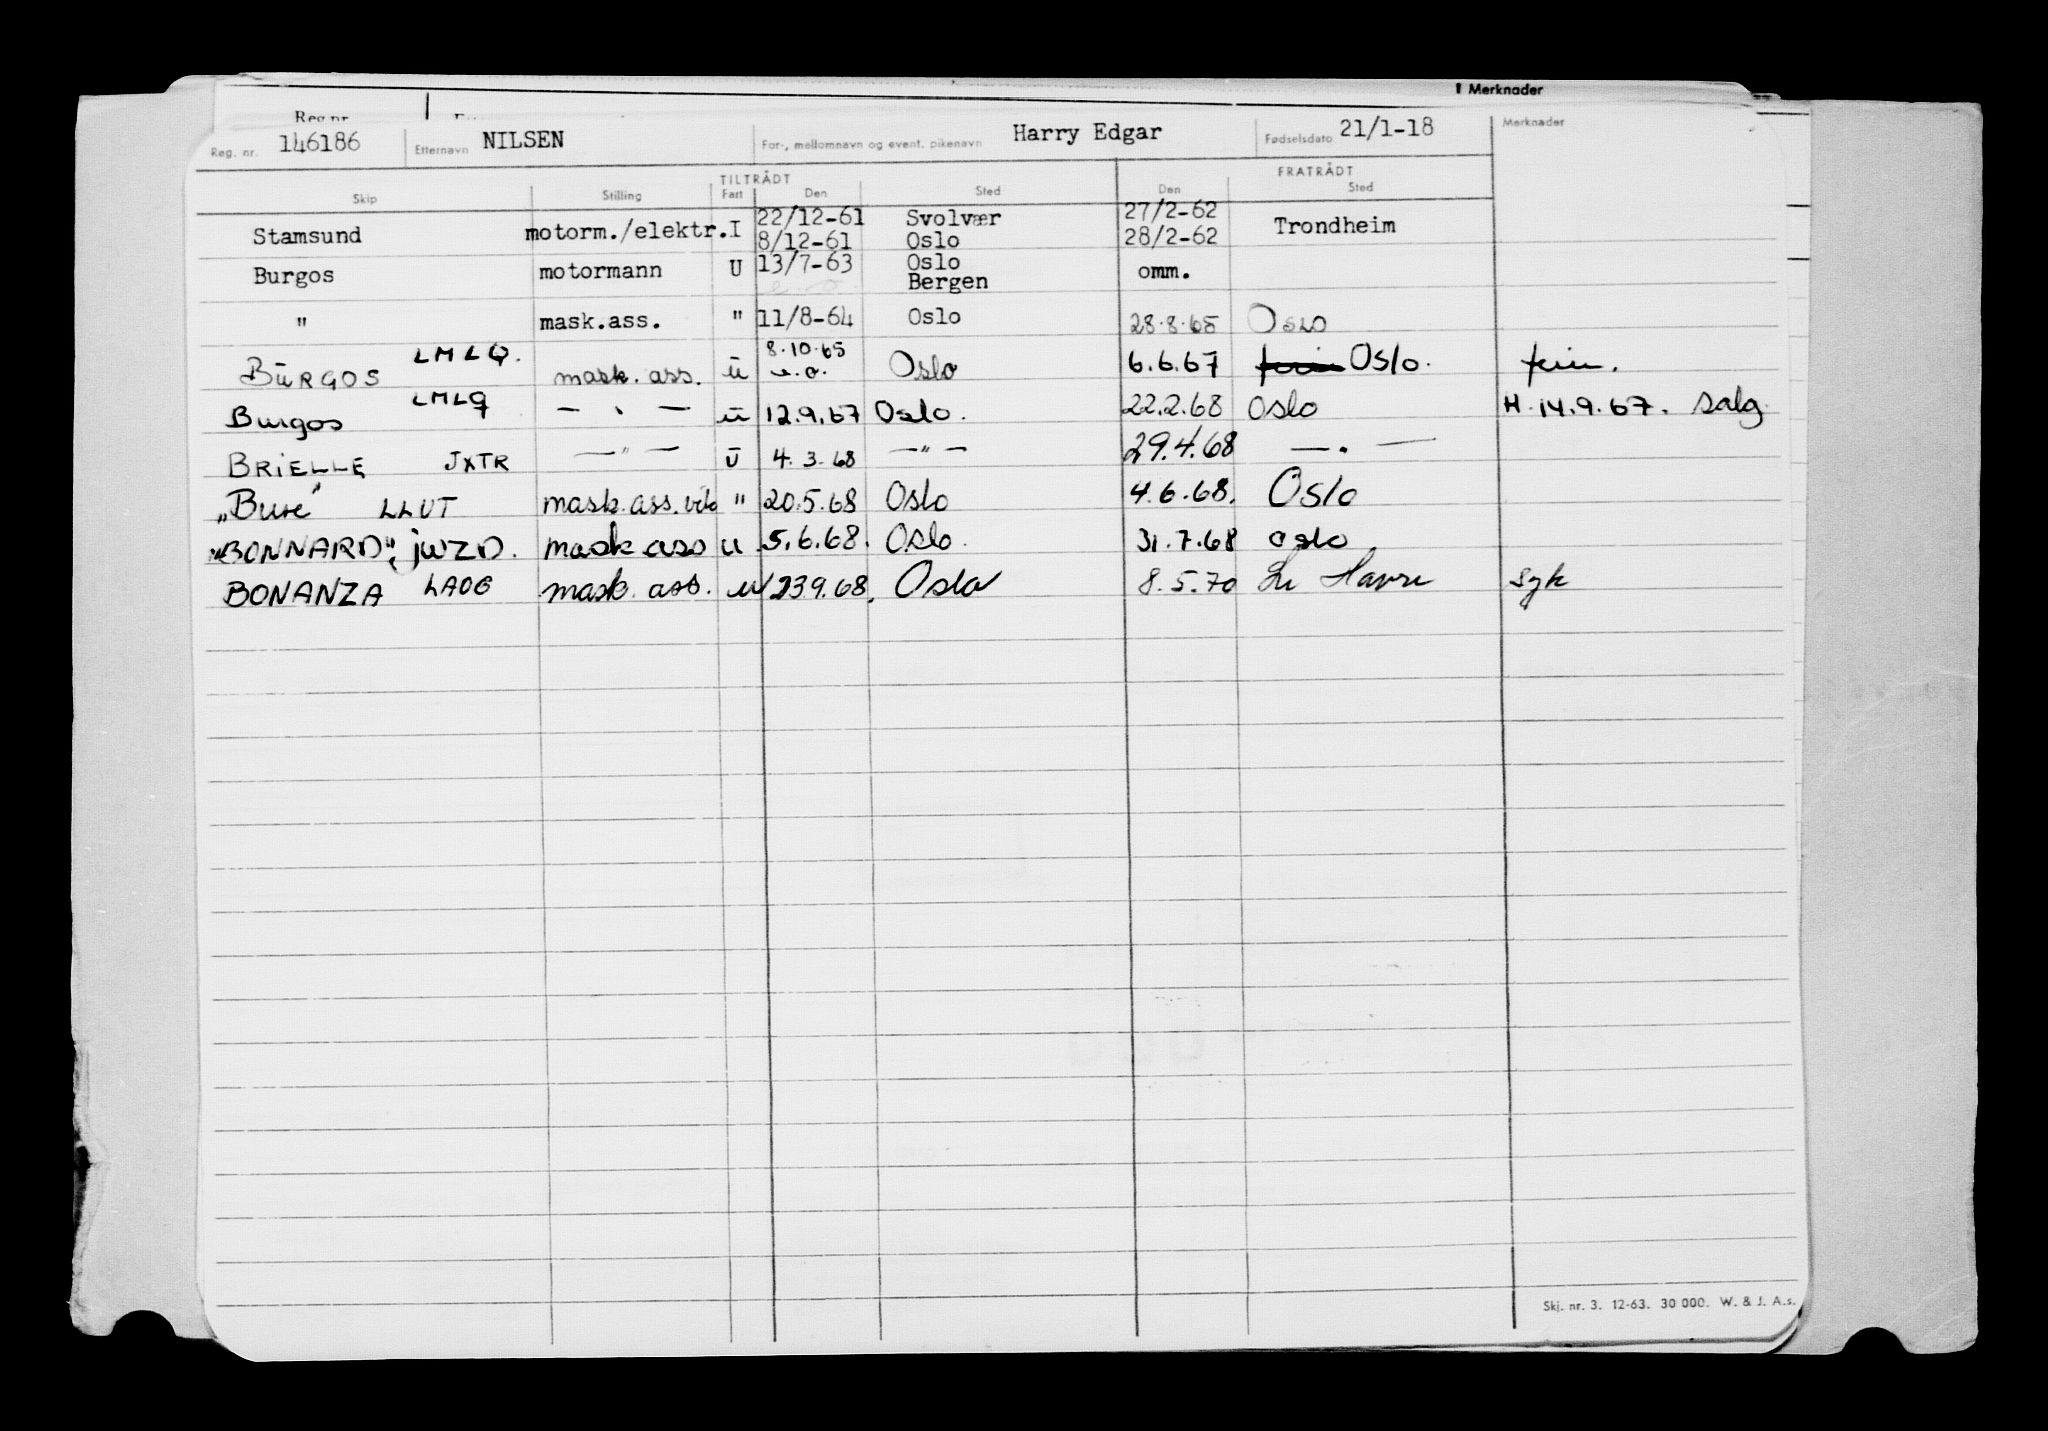 Merknader
Reg.nr.
Reg. nr. 146186 Etternavn NILSEN For-, mellomnavn og event. pikenavn Harry Edgar Fødselsdato 21/1-18 Merknader
TILTRÅDT FRATRÅDT
Skip Stilling Fart Den Sted Den Sted
Stamsund motorm./elektr. I 22/12-61 Svolvær 27/2-62 Trondheim
8/12-61 Oslo 28/2-62
Burgos motormann U 13/7-63 Oslo omm.
Bergen
" mask.ass. " 11/8-64 Oslo 28.8.65 Oslo
BURGOS LMLQ. mask. ass. u 8.10.65 Oslo 6.6.67 Oslo. ferie.
e.o.
Burgos LMLQ — " — u 12.9.67 Oslo. 22.2.68 Oslo H. 14.9.67. Salg.
BRIELLE JXTR — " — u 4.3.68 — " — 29.4.68 — " —
"Bure" LLUT mask.ass. vik " 20.5.68 Oslo 4.6.68. Oslo
"BONNARD", JWZD. mask ass u 5.6.68. Oslo. 31.7.68 Oslo
BONANZA LAOG mask. ass. u 23.9.68. Oslo 8.5.70 Le Havre syk
Skj. nr. 3. 12-63. 30 000. W. & J. A.s.